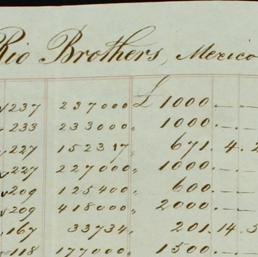 Rio Brothers, Mexico
237 237000 £ 1000
233 233000 " 1000
227 152317 " 671. 4. 2
227 227000 " 1000
209 125400 " 600
209 418000 " 2000
167 33734 " 201. 14. 5
118 177000 " 1500